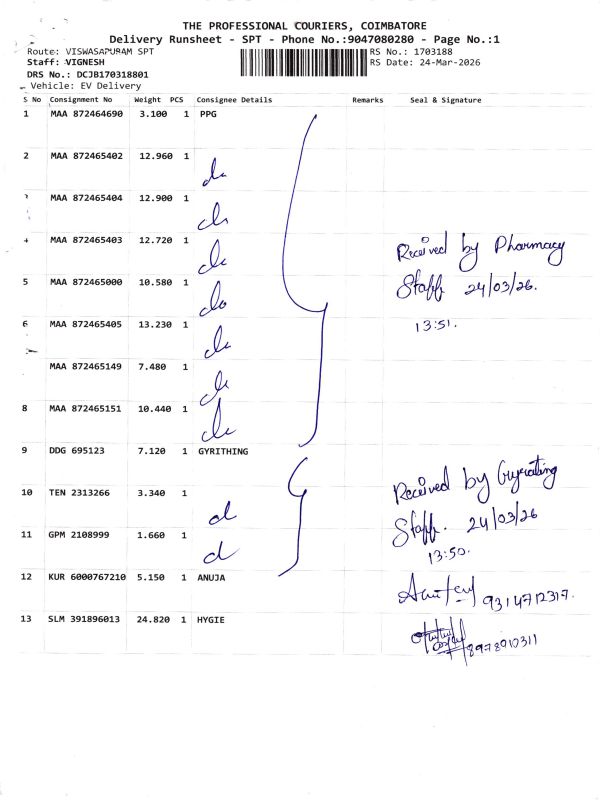 THE PROFESSIONAL COURIERS, COIMBATORE
Delivery Runsheet - SPT - Phone No.:9047080280 - Page No.:1
Route: VISWASAPURAM SPT RS No.: 1703188
Staff: VIGNESH RS Date: 24-Mar-2026
DRS No.: DCJB170318801
Vehicle: EV Delivery
S No Consignment No Weight PCS Consignee Details Remarks Seal & Signature
1 MAA 872464690 3.100 1 PPG
2 MAA 872465402 12.960 1 do
3 MAA 872465404 12.900 1 do
4 MAA 872465403 12.720 1 do
Received by Pharmacy
5 MAA 872465000 10.580 1 do
Staff 24/03/26.
6 MAA 872465405 13.230 1 do
13:51.
MAA 872465149 7.480 1 do
8 MAA 872465151 10.440 1 do
9 DDG 695123 7.120 1 GYRITHING
10 TEN 2313266 3.340 1 d
Received by Gyrating
11 GPM 2108999 1.660 1 d
Staff. 24/03/26
13:50.
12 KUR 6000767210 5.150 1 ANUJA
9314712317.
13 SLM 391896013 24.820 1 HYGIE
8978910311